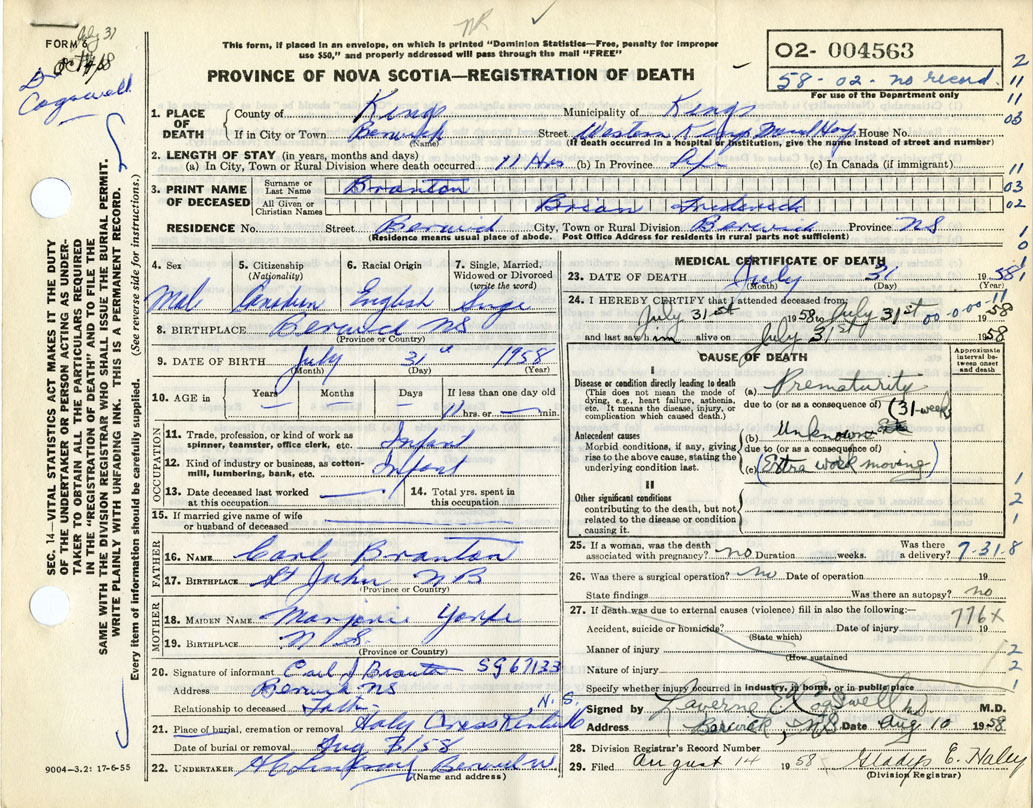 NR ✓
July 31
FORM 6
Cogswell
This form, if placed in an envelope, on which is printed "Dominion Statistics—Free, penalty for improper
use $50," and properly addressed will pass through the mail "FREE"
PROVINCE OF NOVA SCOTIA—REGISTRATION OF DEATH
02- 004563
58-02-no record.
For use of the Department only
1. PLACE OF DEATH
County of Kings Municipality of Kings
If in City or Town Berwick Street Western Kings Meml Hosp House No.
(Name) (If death occurred in a hospital or institution, give the name instead of street and number)
2. LENGTH OF STAY (in years, months and days)
(a) In City, Town or Rural Division where death occurred 11 Hrs (b) In Province Life (c) In Canada (if immigrant)
3. PRINT NAME OF DECEASED
Surname or Last Name Branton
All Given or Christian Names Brian Frederick
RESIDENCE No. Street Berwick City, Town or Rural Division Berwick Province NS
(Residence means usual place of abode. Post Office Address for residents in rural parts not sufficient)
4. Sex 5. Citizenship (Nationality) 6. Racial Origin 7. Single, Married, Widowed or Divorced (write the word)
Male Canadian English Single
8. BIRTHPLACE Berwick NS
(Province or Country)
9. DATE OF BIRTH July 31st 1958
(Month) (Day) (Year)
10. AGE in Years Months Days If less than one day old
– – – 11 hrs. or – min.
OCCUPATION
11. Trade, profession, or kind of work as spinner, teamster, office clerk, etc. Infant
12. Kind of industry or business, as cotton-mill, lumbering, bank, etc. Infant
13. Date deceased last worked at this occupation
14. Total yrs. spent in this occupation
15. If married give name of wife or husband of deceased
FATHER
16. NAME Carl Branton
17. BIRTHPLACE St John NB
(Province or Country)
MOTHER
18. MAIDEN NAME Marjorie
19. BIRTHPLACE NS
(Province or Country)
20. Signature of informant Carl J Branton SG67133
Address Berwick NS
Relationship to deceased Father N.S.
21. Place of burial, cremation or removal Holy Cross Kentville
Date of burial or removal Aug 58
22. UNDERTAKER Berwick
(Name and address)
9004—3.2: 17-6-55
SEC. 14—VITAL STATISTICS ACT MAKES IT THE DUTY
OF THE UNDERTAKER OR PERSON ACTING AS UNDER-
TAKER TO OBTAIN ALL THE PARTICULARS REQUIRED
IN THE "REGISTRATION OF DEATH" AND TO FILE THE
SAME WITH THE DIVISION REGISTRAR WHO SHALL ISSUE THE BURIAL PERMIT.
WRITE PLAINLY WITH UNFADING INK. THIS IS A PERMANENT RECORD.
Every item of information should be carefully supplied. (See reverse side for instructions.)
MEDICAL CERTIFICATE OF DEATH
23. DATE OF DEATH July 31 1958
(Month) (Day) (Year)
24. I HEREBY CERTIFY that I attended deceased from:
July 31st 1958 to July 31st 1958
00-0-00-11
and last saw him alive on July 31st 1958
CAUSE OF DEATH
Approximate interval between onset and death
I
Disease or condition directly leading to death
(This does not mean the mode of dying, e.g., heart failure, asthenia, etc. It means the disease, injury, or complication which caused death.)
(a) Prematurity
due to (or as a consequence of) (31-week
Antecedent causes
Morbid conditions, if any, giving rise to the above cause, stating the underlying condition last.
(b) Unknown
due to (or as a consequence of)
(c) (Extra work moving)
II
Other significant conditions
contributing to the death, but not related to the disease or condition causing it.
25. If a woman, was the death associated with pregnancy? no Duration weeks. Was there a delivery? 7-31-8
26. Was there a surgical operation? no Date of operation 19
State findings Was there an autopsy? no
27. If death was due to external causes (violence) fill in also the following:—
776X
Accident, suicide or homicide? Date of injury 19
(State which)
Manner of injury
(How sustained
Nature of injury
Specify whether injury occurred in industry, in home, or in public place
Signed by Laverne E Cogswell M.D.
Address Berwick, NS Date Aug 10 1958
28. Division Registrar's Record Number
29. Filed August 14 1958 Gladys E. Haley
(Division Registrar)
2
11
11
03
11
03
02
1
0
1
1
2
1
2
2
1